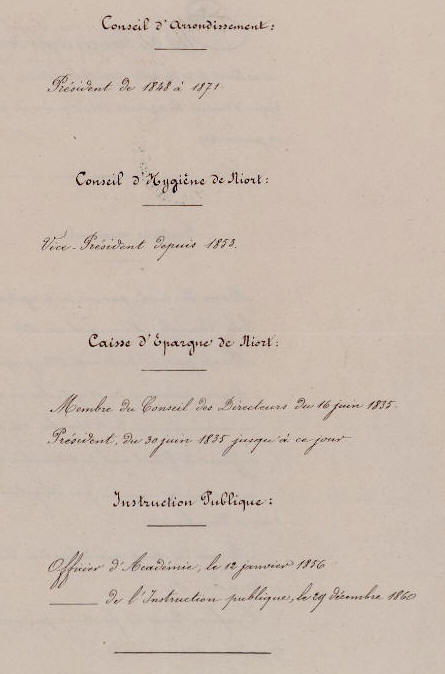 Conseil d'Arrondissement:
Président de 1848 à 1871.
Conseil d'Hygiène de Niort:
Vice-Président depuis 1853.
Caisse d'Epargne de Niort:
Membre du Conseil des Directeurs du 16 juin 1835.
Président, du 30 juin 1835 jusqu'à ce jour
Instruction Publique:
Officier d'Académie, le 12 janvier 1856
——— de l'Instruction publique, le 29 décembre 1860